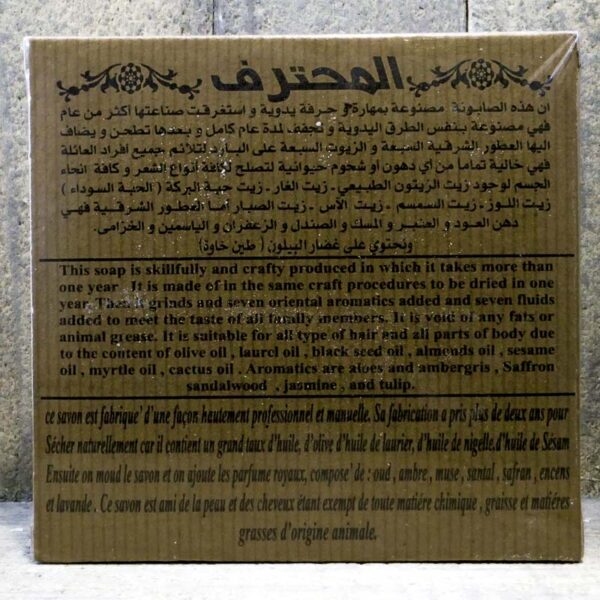 المحترف
ان هذه الصابونة مصنوعة بمهارة و حرفة يدوية و استغرقت صناعتها أكثر من عام
فهي مصنوعة بنفس الطرق اليدوية و تجفف لمدة عام كامل و بعدها تطحن و يضاف
اليها العطور الشرقية السبعة و الزيوت السبعة على البارد لتلائم جميع أفراد العائلة
فهي خالية تماماً من أي دهون أو شحوم حيوانية لتصلح لكافة أنواع الشعر و كافة انحاء
الجسم لوجود زيت الزيتون الطبيعي . زيت الغار . زيت حبة البركة ( الحبة السوداء )
زيت اللوز . زيت السمسم . زيت الآس . زيت الصبار أما العطور الشرقية فهي
دهن العود و العنبر و المسك و الصندل و الزعفران و الياسمين و الخزامى.
ونحتوي على غضار البيلون ( طين خاوة)
This soap is skillfully and crafty produced in which it takes more than
one year . It is made of in the same craft procedures to be dried in one
year. Then it grinds and seven oriental aromatics added and seven fluids
added to meet the taste of all family members. It is void of any fats or
animal grease. It is suitable for all type of hair and all parts of body due
to the content of olive oil , laurel oil , black seed oil , almonds oil , sesame
oil , myrtle oil , cactus oil . Aromatics are aloes and ambergris , Saffron
sandalwood , jasmine , and tulip.
ce savon est fabrique' d'une façon hautement professionnel et manuelle. Sa fabrication a pris plus de deux ans pour
Sécher naturellement car il contient un grand taux d'huile, d'olive d'huile de laurier, d'huile de nigelle.d'huile de Sésam
Ensuite on moud le savon et on ajoute les parfume royaux, compose' de : oud , ambre , muse , santal , safran , encens
et lavande . Ce savon est ami de la peau et des cheveux étant exempt de toute matiére chimique , graisse et matiéres
grasses d'origine animale.